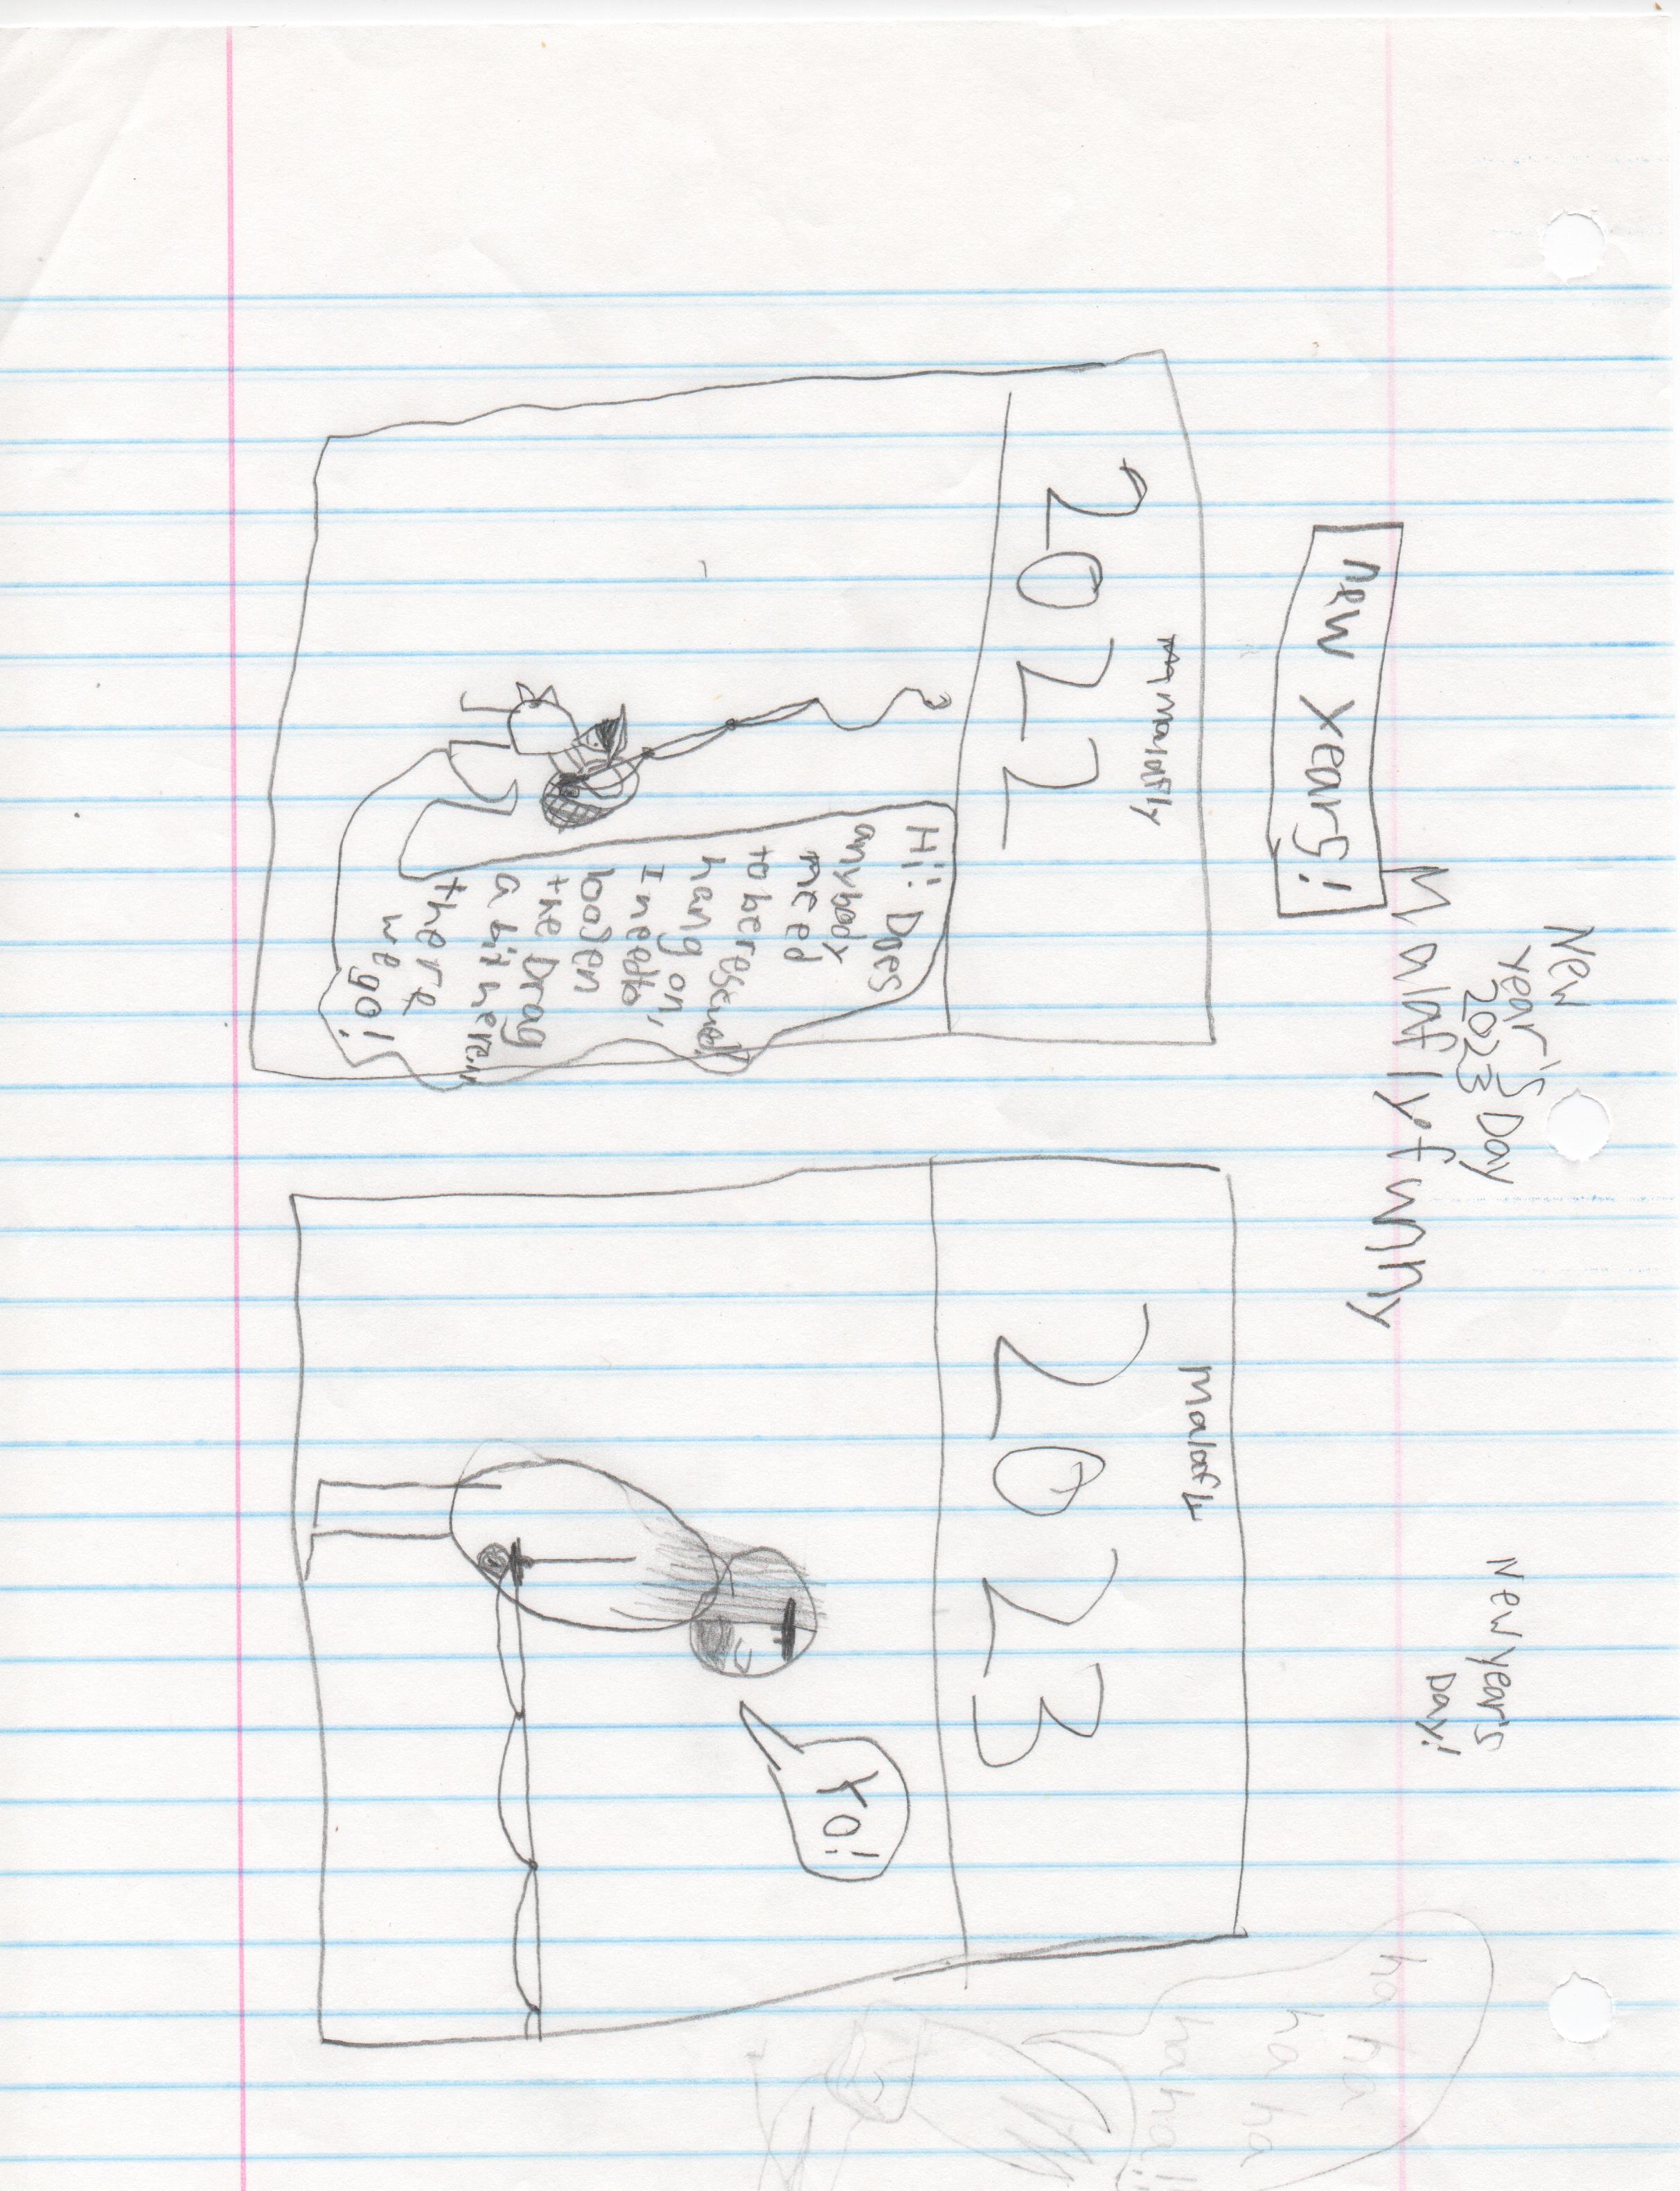 New
Year's Day
2023
Malaflyfunny
New Years!
New Year's
Day!
Malafly
2022
Hi! Does
anybody
need
to be rescued?
hang on,
I need to
loosen
the Drag
a bit here...
there
we
go!
Malafly
2023
Yo!
ha
ha
ha ha
haha!!